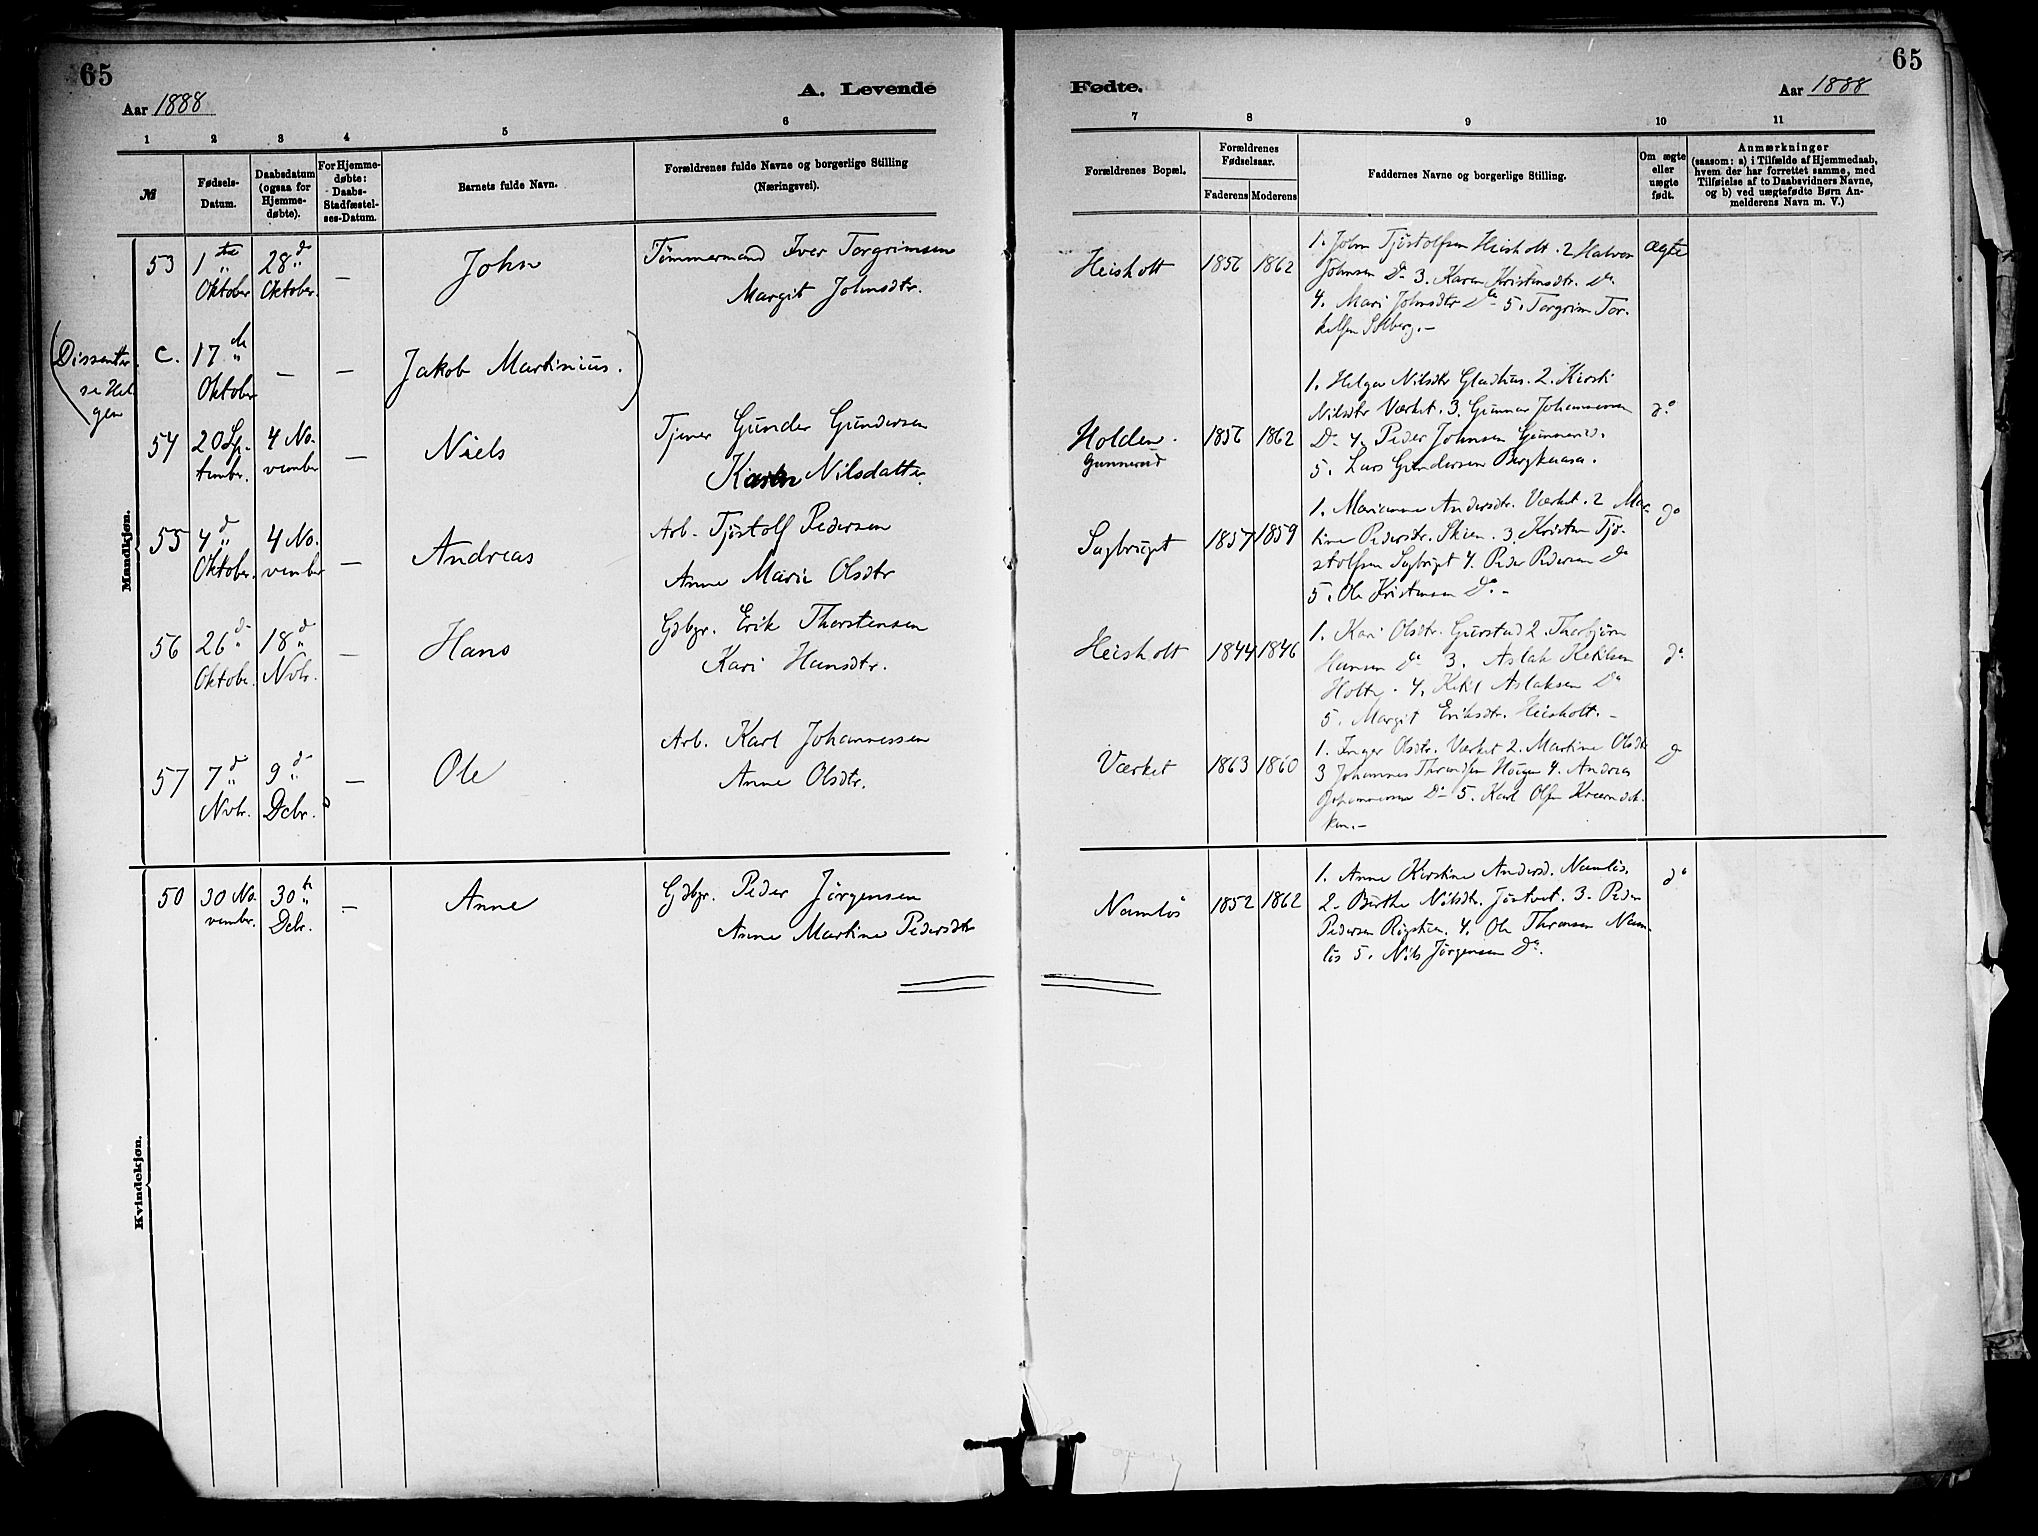 65
Aar 1888
A. Levende
1 2 3 4 5 6
№
Fødsels-
Datum.
Daabsdatum
(ogsaa for
Hjemme-
døbte).
For Hjemme-
døbte:
Daabs-
Stadfæstel-
ses-Datum.
Barnets fulde Navn.
Forældrenes fulde Navne og borgerlige Stilling
(Næringsvei).
Mandkjøn.
53 1 Oktober 28 Oktober. — John
Tømmermand Iver Torgrimsen
Margit Johnsdtr.
(Dissenter
C. 17 Oktober — — Jakob Martinius.)
54 20 Sep-
tember. 4 No-
vember — Niels
Tjener Gunder Gundersen
Karen Nilsdatter
55 4 Oktober. 4 No-
vember — Andreas
Arb. Tjøstolf Pedersen
Anne Marie Olsdtr
56 26 Oktobr. 18 Novbr. — Hans
Gdbgr. Erik Thorstensen
Kari Hansdtr.
57 7 Novbr. 9 Dcbr. — Ole
Arb. Karl Johannessen
Anne Olsdtr.
Kvindekjøn.
50 30 No-
vembr. 30 Dcbr. — Anne
Gdbgr. Peder Jørgensen
Anne Martine Pedersdtr
65
Fødte.
Aar 1888
7 8 9 10 11
Forældrenes Bopæl.
Forældrenes
Fødselsaar.
Faderens Moderens
Faddernes Navne og borgerlige Stilling.
Om ægte
eller
uægte
født.
Anmærkninger
(saasom: a) i Tilfælde af Hjemmedaab,
hvem der har forrettet samme, med
Tilføielse af to Daabsvidners Navne,
og b) ved uægtefødte Børn An-
melderens Navn m. V.)
Heisholt 1856 1862
1. John Tjøstolfsen Heisholt. 2 Halvor
Johnsen Do 3. Karen Kristensdtr. Do
4. Mari Johnsdtr Do 5. Torgrim Tor-
kelsen
Ægte
Holden. 1856 1862
Gunnerud
1. Helga Nilsdtr Gladhus. 2. Kirsti
Nilsdtr Værket. 3. Gunnar Johannessen
Do 4. Peder Johnsen Gunnerud.
5. Lars Gundersen Bergkaasa.
do
Sagbruget 1857 1859
1. Marianne Andersdtr. Værket. 2 Mar-
tine Pedersdtr. Skien. 3. Kristen Tjø-
stolfsen Sagbruget 4. Peder Pedersen Do
5. Ole Kristensen Do. –
do
Heisholt 1844 1846
1. Kari Olsdtr. Gurstad 2. Thorbjørn
Hansen Do 3. Aslak Ketilsen
Holte. 4. Ketil Aslaksen Do
5. Margit Eriksdtr. Heisholt. –
do
Værket 1863 1860
1. Inger Olsdtr. Værket 2. Martine Olsdtr
3 Johannes Throndsen Haugen 4. Andreas
Johannessen Do 5. Karl Olsen
do
Namløs 1852 1862
1. Anne Kirstine Andersd. Namløs.
2. Birthe Nilsdtr. 3. Peder
Pedersen 4. Ole Thronsen Nam-
løs 5. Nils Jørgensen Do.
do